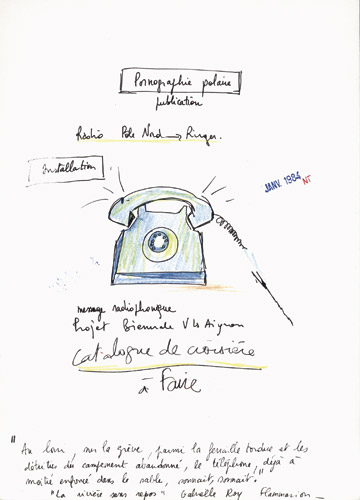 Pornographie polaire
publication
Radio Pôle Nord → Ringer.
Installation
JANV. 1984
NT
message radiophonique
Projet Biennale V les Aignon
Catalogue de croisière
à Faire
"Au loin, sur la grève, parmi la ferraille tordue et les
détritus du campement abandonné, le téléphone, déjà à
moitié enfoncé dans le sable, sonnait, sonnait."
"La rivière sans repos" Gabrielle Roy Flammarion –